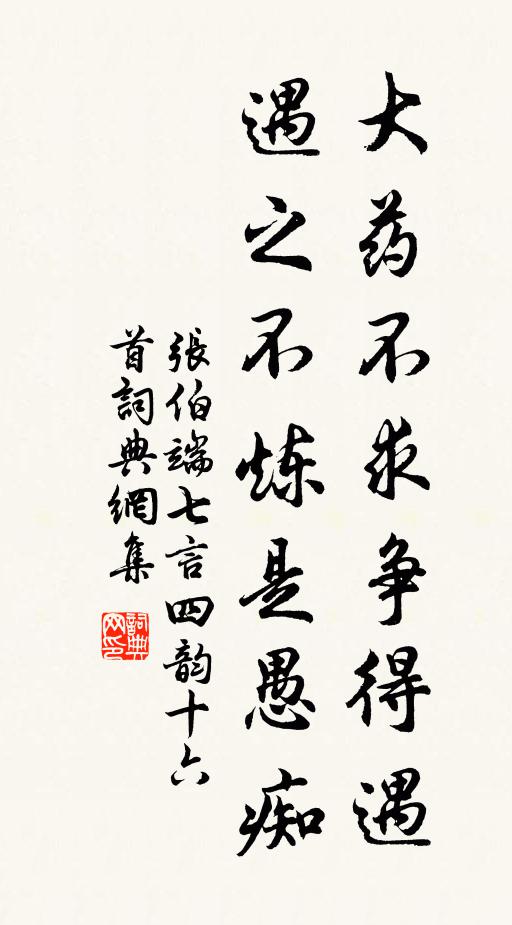 大药不求争得遇
遇之不炼是愚痴
張伯端七言四韵十六
首詞典網集
詞典
网印